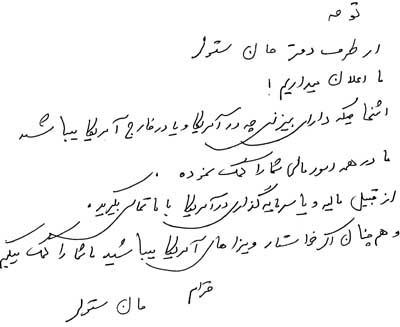 توجه
از طرف دفتر جان ستولر
ما اعلان میداریم !
اشخاصیکه دارای بیزنس چه در آمریکا و یا در خارج آمریکا میباشند
ما در همه امور مالی شما را کمک نموده .
از قبیل مالیه و یا سرمایه گذاری در آمریکا با ما تماس بگیرید .
و همچنان اگر خواستار ویزا های آمریکا میباشید ما شما را کمک میکنیم
جان ستولر